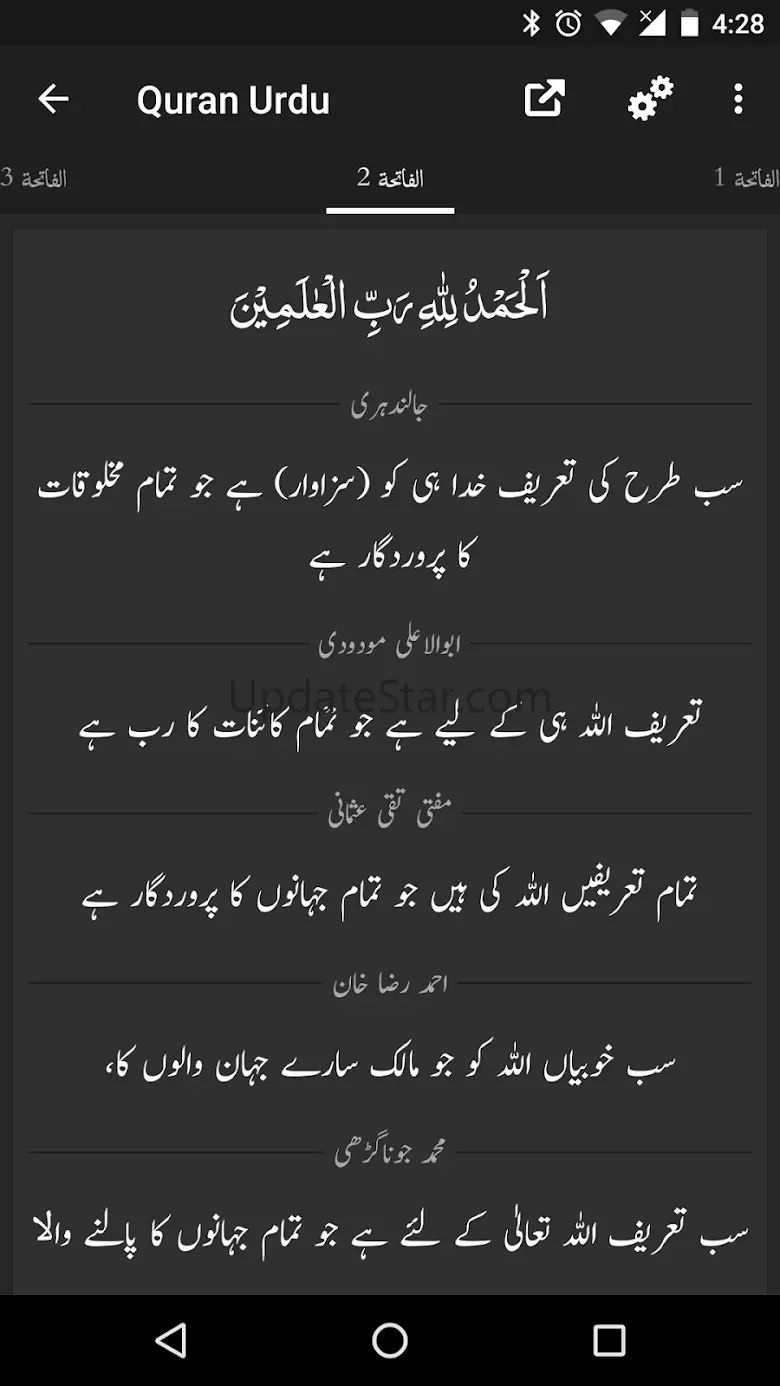 4:28
Quran Urdu
الفاتحة 1
الفاتحة 2
الفاتحة 3
اَلْحَمْدُ لِلّٰهِ رَبِّ الْعٰلَمِيْنَ
جالندہری
سب طرح کی تعریف خدا ہی کو (سزاوار) ہے جو تمام مخلوقات
کا پروردگار ہے
ابوالاعلی مودودی
UpdateStar.com
تعریف اللہ ہی کے لیے ہے جو تمام کائنات کا رب ہے
مفتی تقی عثمانی
تمام تعریفیں اللہ کی ہیں جو تمام جہانوں کا پروردگار ہے
احمد رضا خان
سب خوبیاں اللہ کو جو مالک سارے جہان والوں کا،
محمد جوناگڑھی
سب تعریف اللہ تعالٰی کے لئے ہے جو تمام جہانوں کا پالنے والا